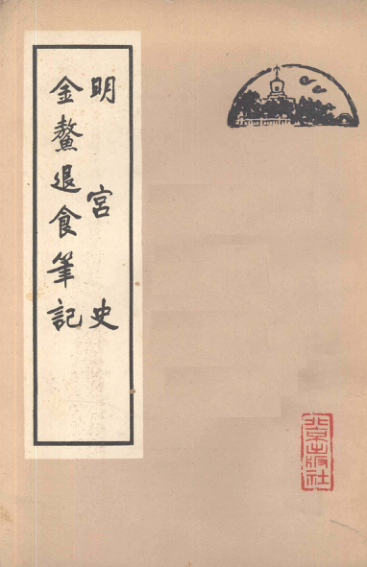 明宮史
金鰲退食筆記
北京出版社